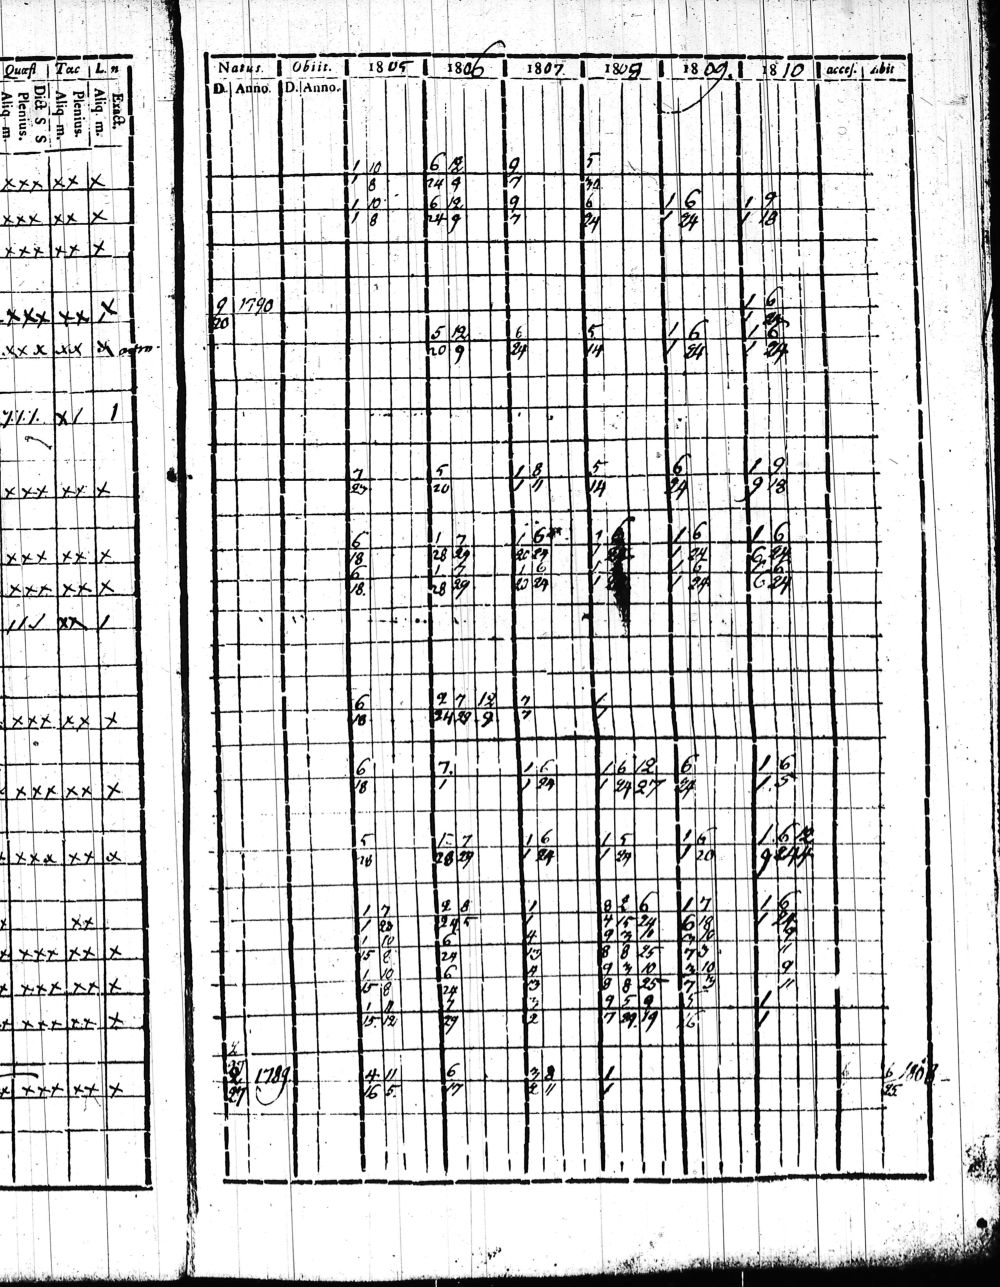 Quæst | Tac | L. n
Aliq. m. Plenius. Dict. S S Aliq. m. Plenius. Aliq. m. Exact.
Natus. | Obiit. | 1805 | 1806 | 1807. | 1808 | 1809. | 1810 | access. | abiit
D. | Anno. | D. | Anno.
1 10 | 6 12 | 9 | 5
1 8 | 24 9 | 7 | 30
1 10 | 6 12 | 9 | 6 | 1 6 | 1 9
1 8 | 24 9 | 7 | 24 | 1 24 | 1 18
xxx xx x
xxx xx x
xxx xx x
9 1790 | 1 6
20 | 1 24
xxx xx x
5 12 | 6 | 5 | 1 6 | 1 6
20 9 | 24 | 14 | 1 24 | 1 24
xxx xx x
7 | 5 | 1 8 | 5 | 6 | 1 9
20 | 1 11 | 14 | 24 | 9 18
xxx xx x
6 | 1 7 | 1 6 | 1 | 1 6 | 1 6
18 | 28 29 | 20 24 | 1 | 1 24 | 6 24
xxx xx x
6 | 1 7 | 1 6 | 1 | 1 6 | 6
18. | 28 29 | 20 24 | 1 | 1 24 | 6 24
xxx xx x
6 | 2 7 12 | 7 | 1
18 | 24 29 9 | 7 | 1
xxx xx x
6 | 7. | 1 6 | 1 6 12 | 6 | 1 6
18 | 1 | 1 24 | 1 24 27 | 24 | 1 5
xxx xx x
5 | 1 7 | 1 6 | 1 5 | 1 6 | 1 6 12
28 | 28 29 | 1 24 | 1 29 | 1 20 | 9 24 4
xxx xx x
1 7 | 2 8 | 1 | 8 2 6 | 1 7 | 1 6
1 20 | 24 5 | 1 | 4 15 24 | 6 19 | 1 24
xx
1 10 | 6 | 4 | 9 3 10 | 3 10 | 9
15 8 | 24 | 13 | 8 8 25 | 7 3 | 11
xxx xx x
1 10 | 6 | 4 | 9 3 10 | 3 10 | 9
15 8 | 24 | 13 | 8 8 25 | 7 3 | 11
xxx xx x
1 11 | 7 | 3 | 9 5 9 | 5 | 1
15 12 | 29 | 2 | 7 29 19 | 16 | 1
xxx xx x
1789 | 4 11 | 6 | 3 8 | 1 | 6 1808
27 | 16 5. | 17 | 2 11 | 1 | 25
xxx xx x